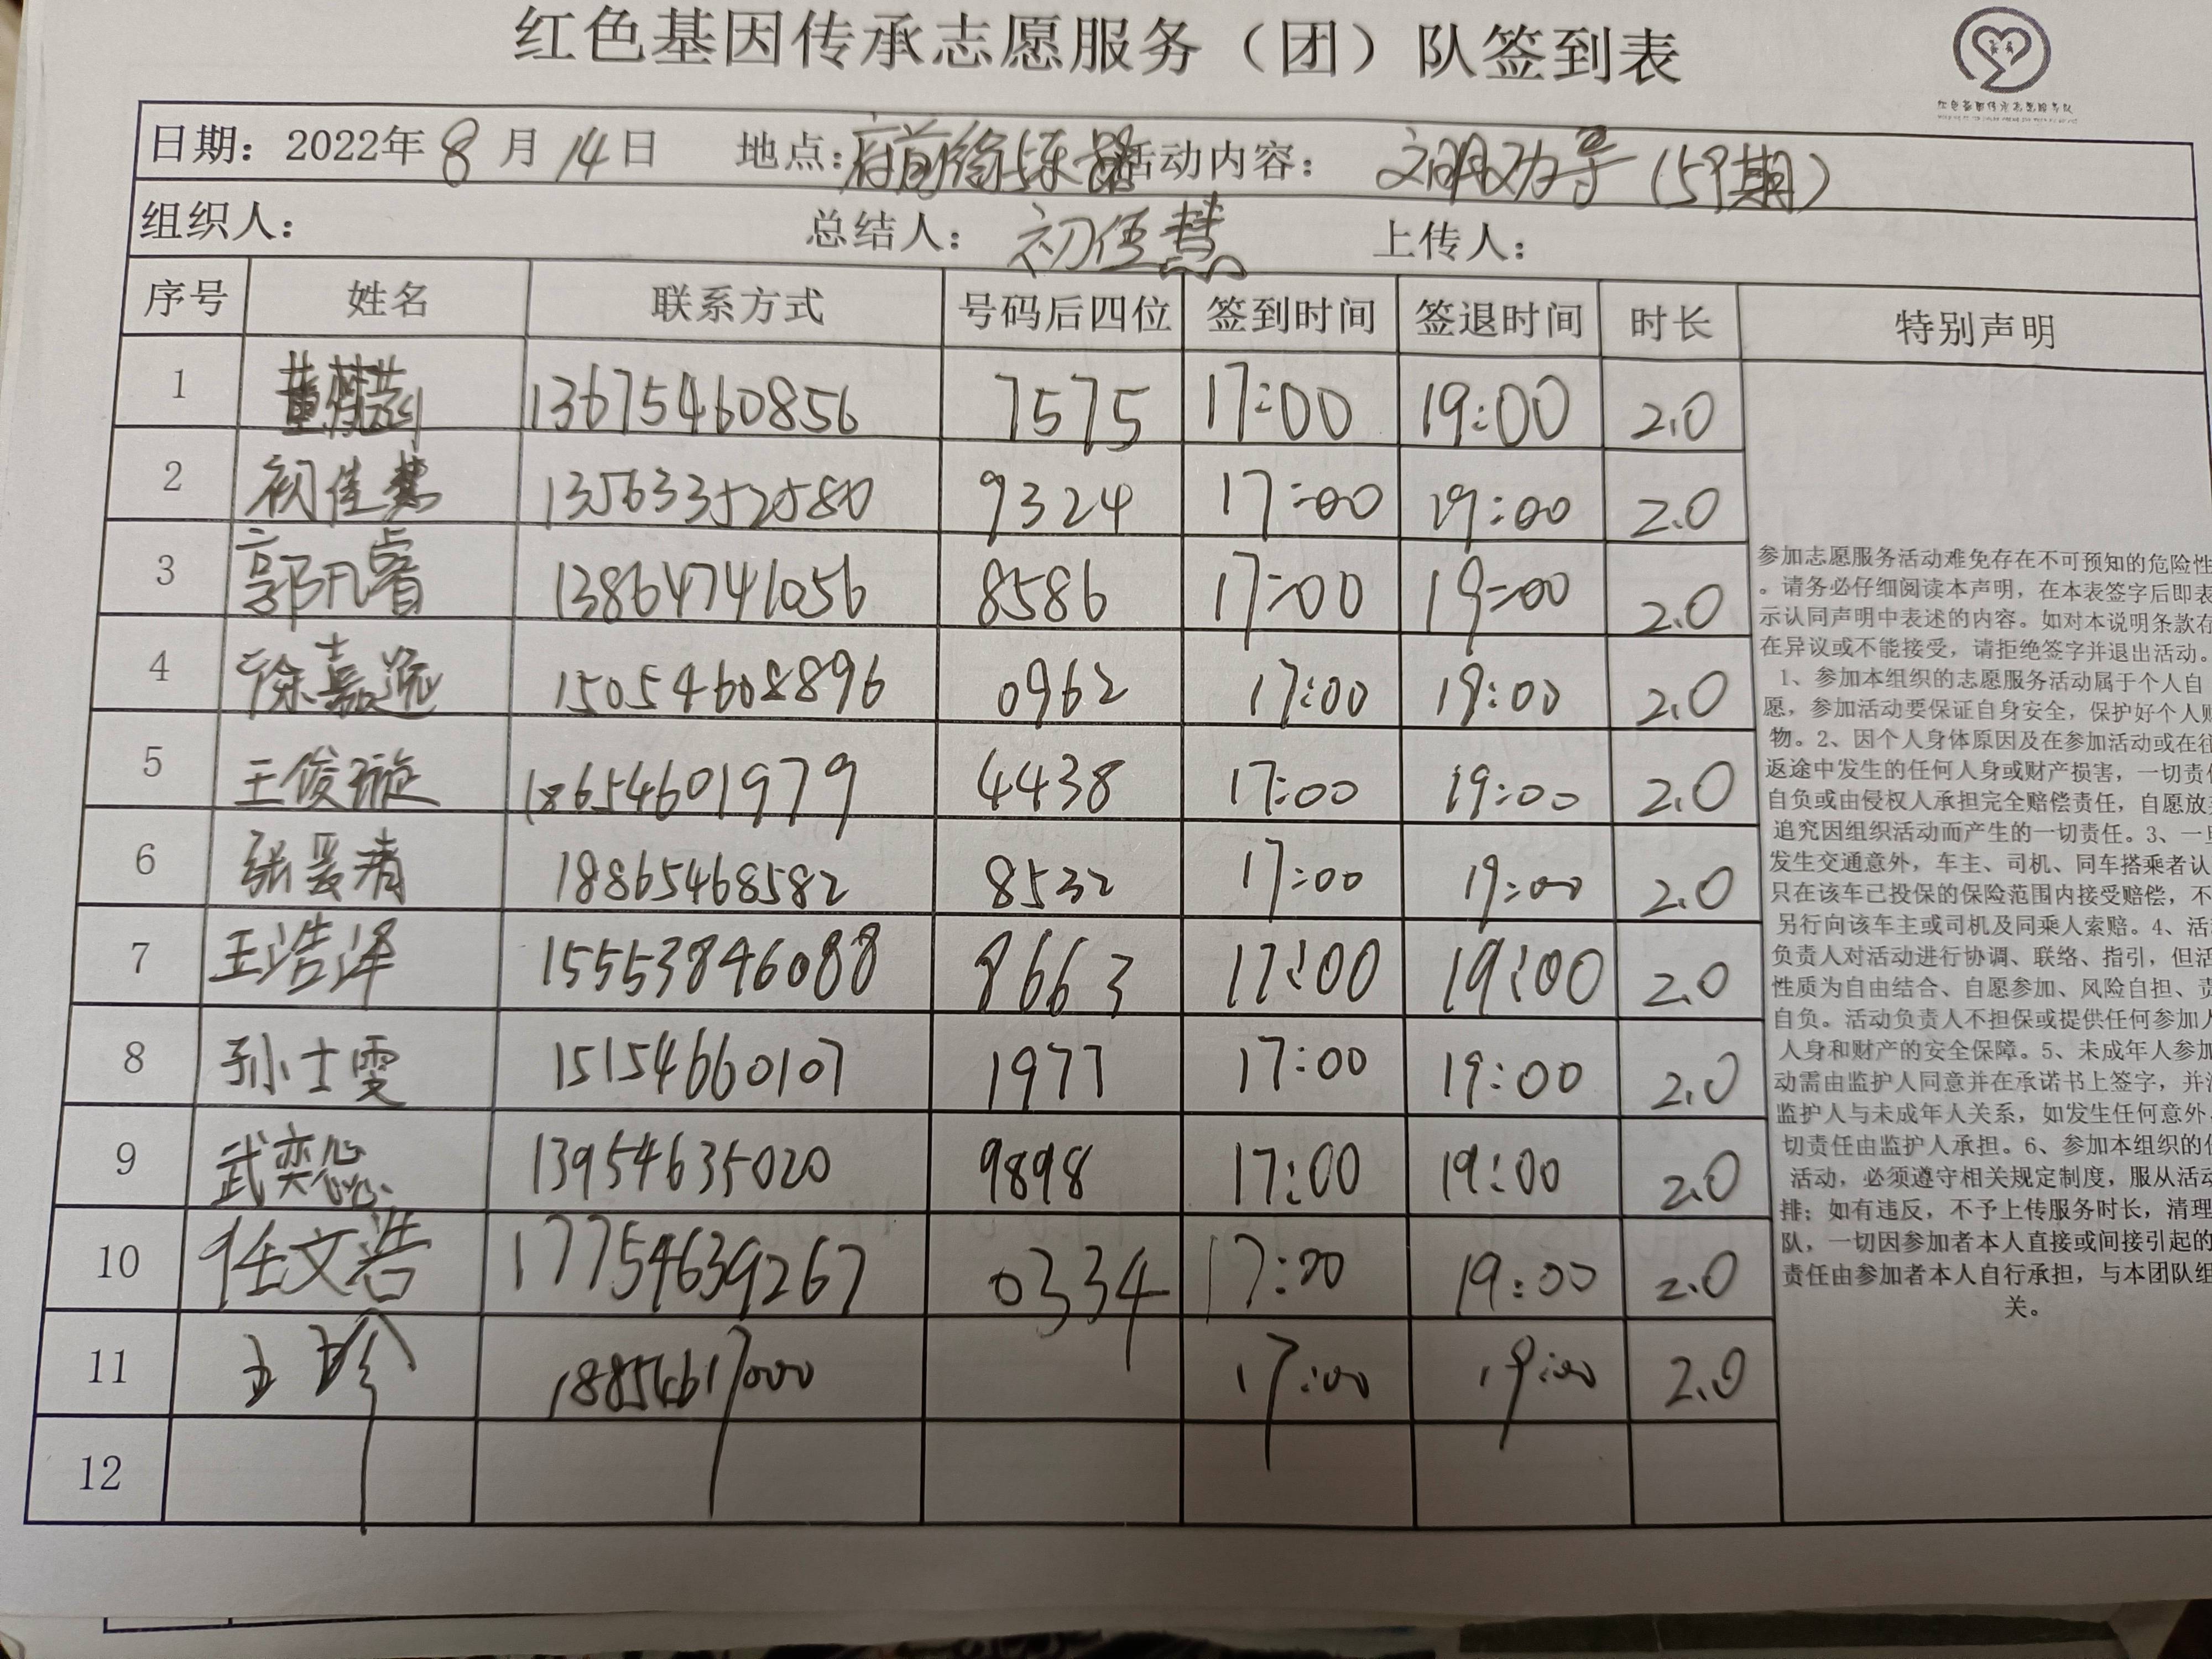 红色基因传承志愿服务（团）队签到表
红色基因传承志愿服务队
日期：2022年8月14日 地点：府前徐 路 活动内容：文明劝导（59期）
组织人： 总结人：初佳慧 上传人：
序号 姓名 联系方式 号码后四位 签到时间 签退时间 时长 特别声明
1 董 13675460856 7575 17:00 19:00 2.0
2 初佳慧 13563352580 9324 17:00 19:00 2.0
3 郭凡睿 13864741056 8586 17:00 19:00 2.0
4 徐嘉逸 15054608896 0962 17:00 19:00 2.0
5 王俊璇 18654601979 4438 17:00 19:00 2.0
6 张 清 18865468582 8532 17:00 19:00 2.0
7 王浩泽 15553846088 8663 17:00 19:00 2.0
8 孙士雯 15154660107 1977 17:00 19:00 2.0
9 武奕 13954635020 9898 17:00 19:00 2.0
10 任文浩 17754639267 0334 17:00 19:00 2.0
11 王珍 18854617000 17:00 19:00 2.0
12
参加志愿服务活动难免存在不可预知的危险性
。请务必仔细阅读本声明，在本表签字后即表
示认同声明中表述的内容。如对本说明条款存
在异议或不能接受，请拒绝签字并退出活动。
1、参加本组织的志愿服务活动属于个人自
愿，参加活动要保证自身安全，保护好个人财
物。2、因个人身体原因及在参加活动或在往
返途中发生的任何人身或财产损害，一切责任
自负或由侵权人承担完全赔偿责任，自愿放
追究因组织活动而产生的一切责任。3、一旦
发生交通意外，车主、司机、同车搭乘者认
只在该车已投保的保险范围内接受赔偿，不
另行向该车主或司机及同乘人索赔。4、活
负责人对活动进行协调、联络、指引，但活
性质为自由结合、自愿参加、风险自担、责
自负。活动负责人不担保或提供任何参加人
人身和财产的安全保障。5、未成年人参加
动需由监护人同意并在承诺书上签字，并
监护人与未成年人关系，如发生任何意外
切责任由监护人承担。6、参加本组织的
活动，必须遵守相关规定制度，服从活动
排；如有违反，不予上传服务时长，清理
队，一切因参加者本人直接或间接引起的
责任由参加者本人自行承担，与本团队组
关。